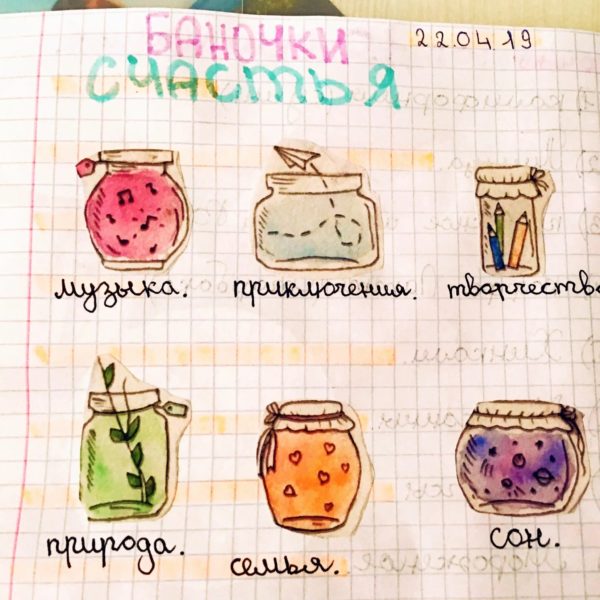 БАНОЧКИ 22.04.19
СЧАСТЬЯ
музыка. приключения. творчество
природа. семья. сон.